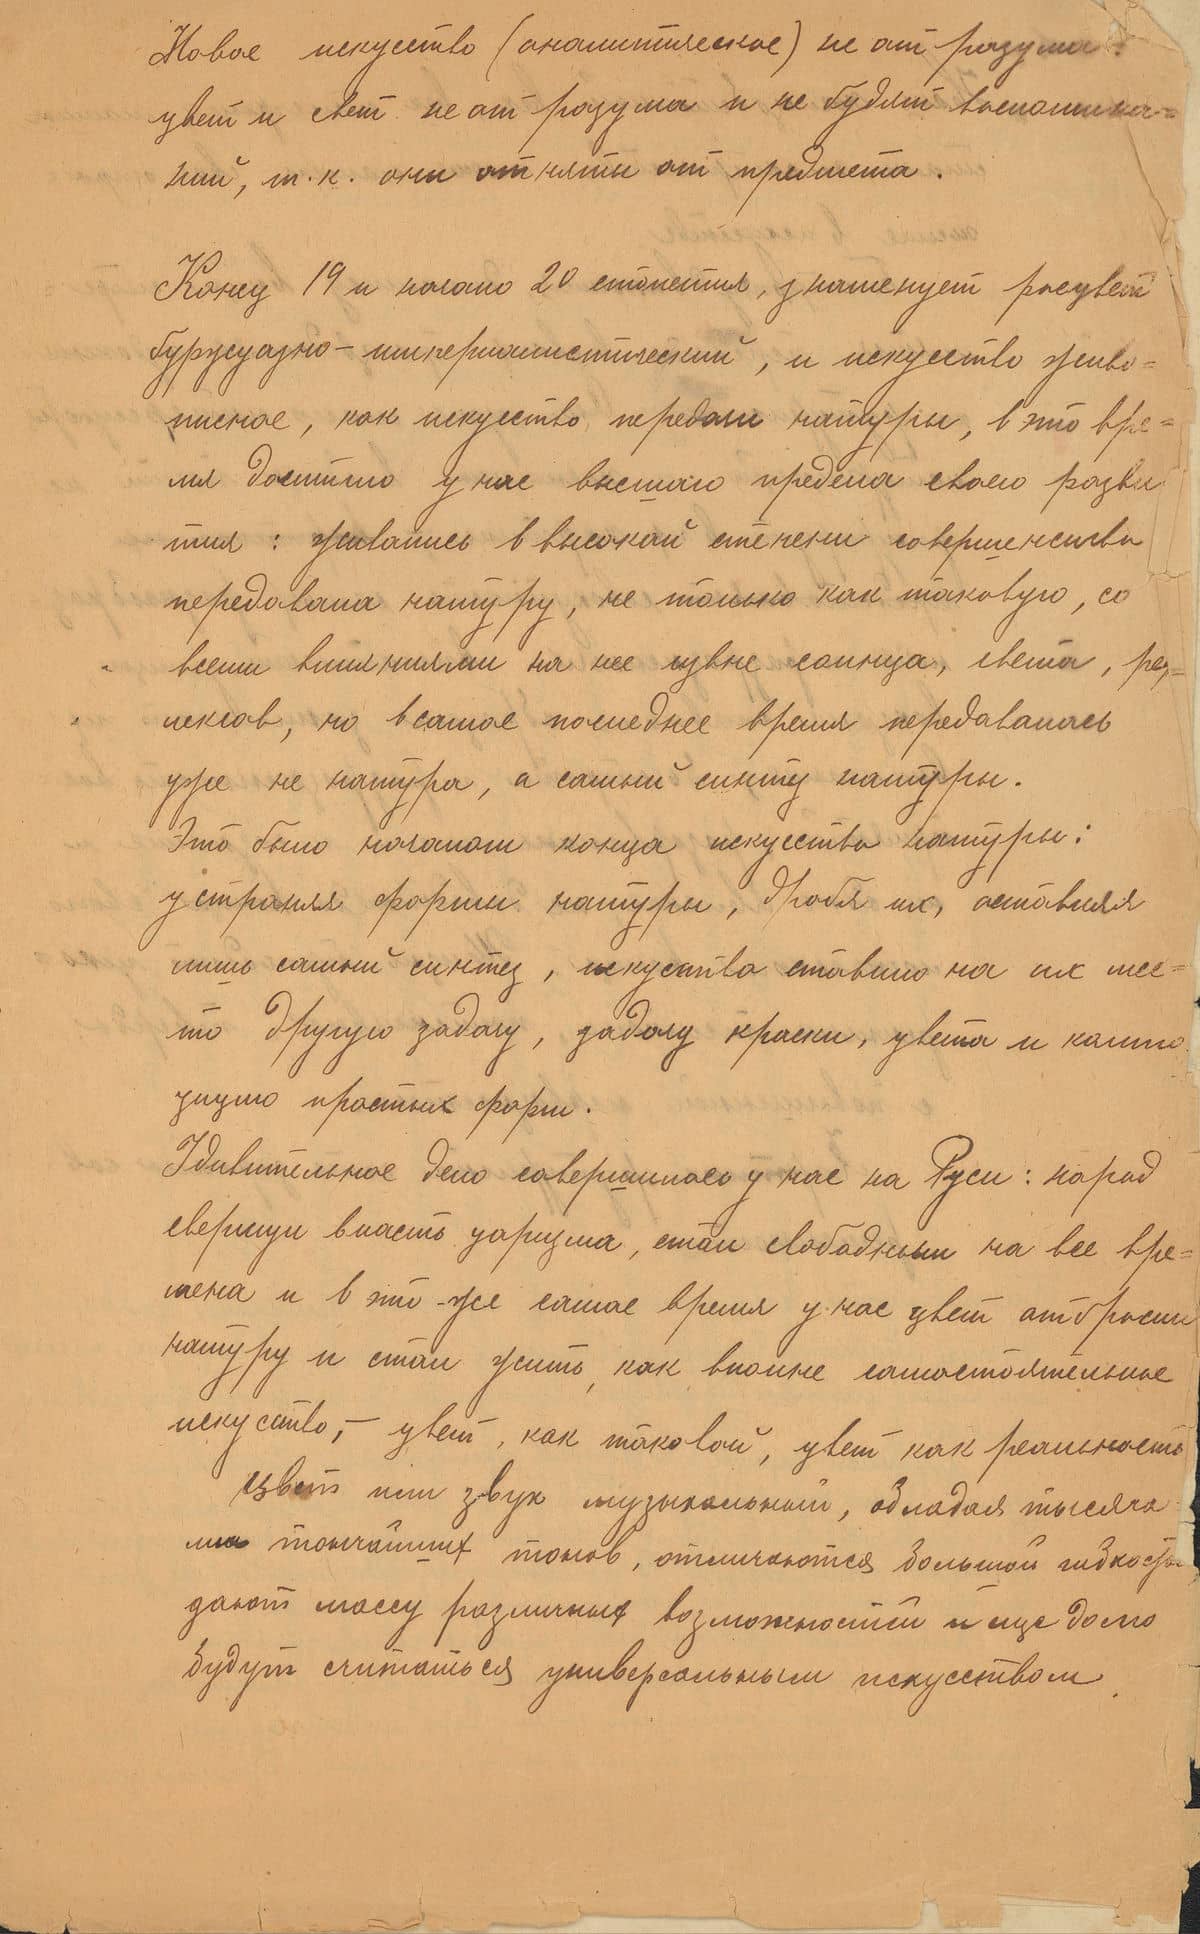 Новое искусство (аналитическое) не от разума:
цвет и свет не от разума и не будят воспомина-
ний, т.к. они отняты от предмета.
Конец 19 и начало 20 столетия, знаменует расцвет
буржуазно-империалистический, и искусство живо-
писное, как искусство передачи натуры, в это вре-
мя достигло у нас высшего предела своего разви
тия: живопись в высокой степени совершенства
передавала натуру, не только как таковую, со
всеми влияниями на нее извне солнца, света, реф-
лексов, но в самое последнее время передавалась
уже не натура, а самый синтез натуры.
Это было началом конца искусства натуры:
устраняя формы натуры, дробя их, оставляя
лишь самый синтез, искусство ставило на их мес-
то другую задачу, задачу краски, цвета и компо
зицию простых форм.
Удивительное дело совершилось у нас на Руси: народ
свергнув власть царизма, стал свободным на все вре-
мена и в это-же самое время у нас цвет отбросил
натуру и стал жить, как вполне самостоятельное
искусство, - цвет, как таковой, цвет как реальность
Цвет или звук музыкальный, обладая тысяча
ми тончайших тонов, отличаются большой гибкостью
дают массу различных возможностей и еще долго
будут считаться универсальным искусством.